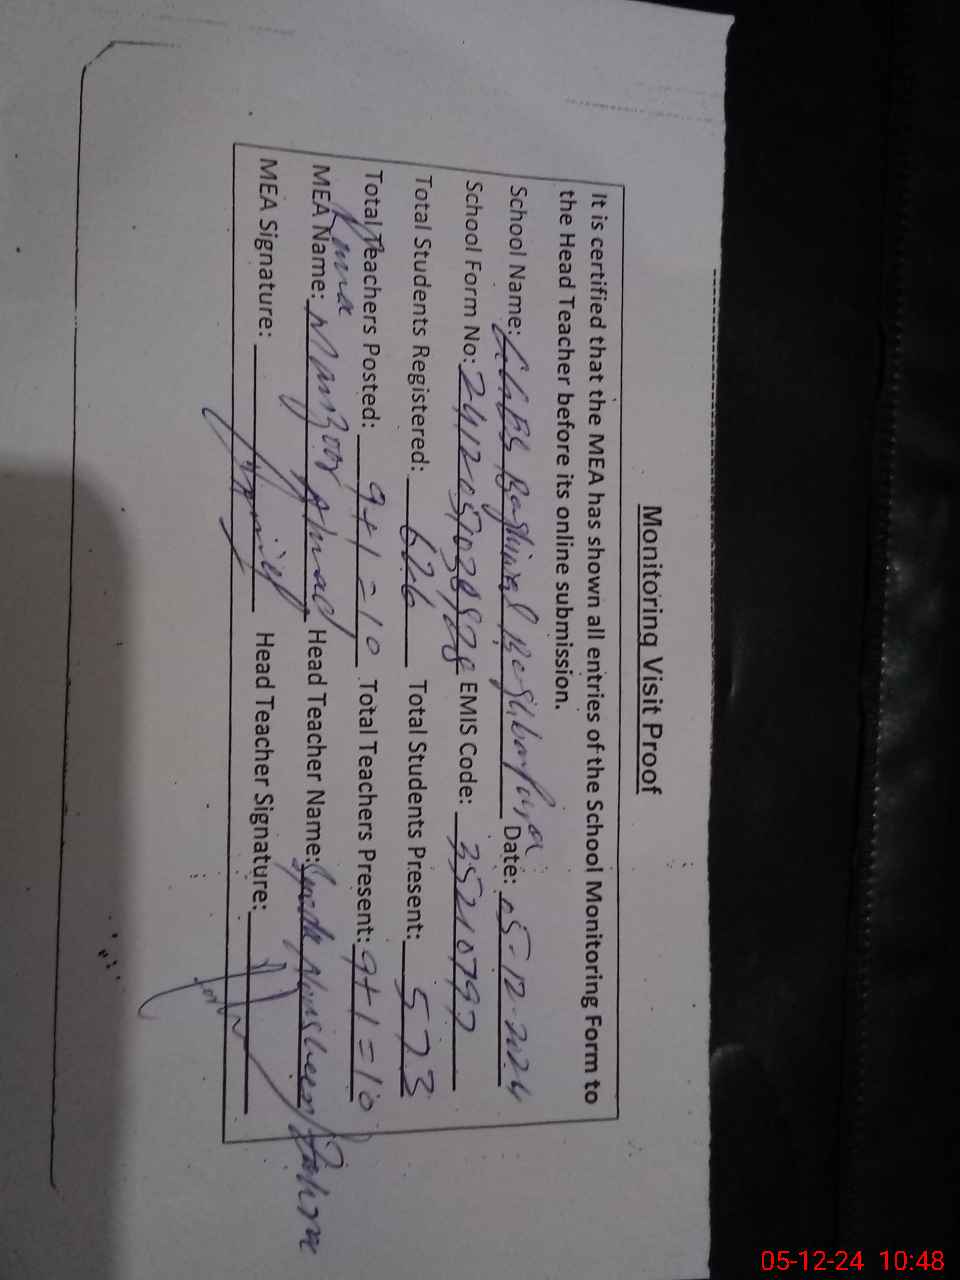 Monitoring Visit Proof
It is certified that the MEA has shown all entries of the School Monitoring Form to
the Head Teacher before its online submission.
School Name: Date: 05-12-2024
School Form No: EMIS Code: 35210797
Total Students Registered: 626 Total Students Present: 573
Total Teachers Posted: 9+1=10 Total Teachers Present: 9+1=10
MEA Name: Rana Manzoor Ahmad Head Teacher Name: Syeda
MEA Signature: Head Teacher Signature:
05-12-24 10:48